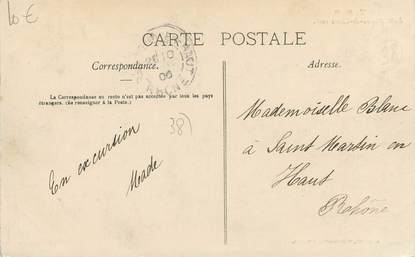 10 €
CARTE POSTALE
Correspondance.
Adresse.
La Correspondance au recto n'est pas acceptée par tous les pays
étrangers. (Se renseigner à la Poste.)
38)
En excursion
Mademoiselle Blanc
à Saint Martin en
Haut
Rhône